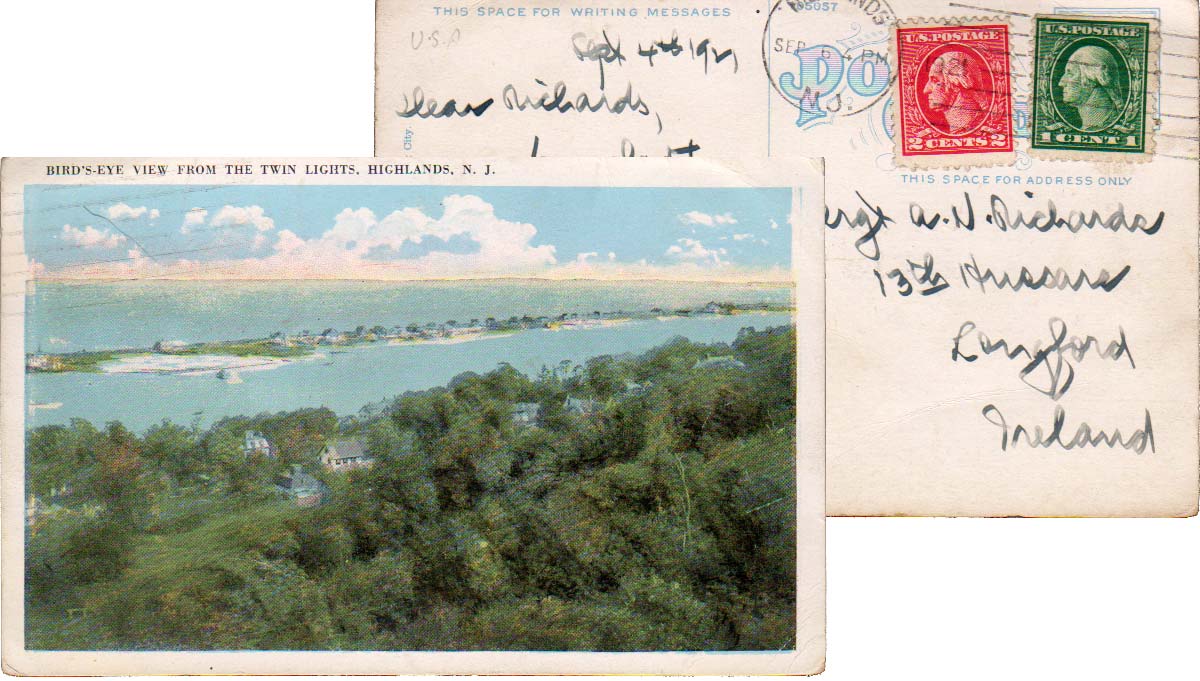 THIS SPACE FOR WRITING MESSAGES
U.S.A
Sept 4th 1921
Dear Richards,
City.
05057
SEP 6 4 PM
N.J.
U.S. POSTAGE
2 CENTS 2
U.S. POSTAGE
1 CENT 1
THIS SPACE FOR ADDRESS ONLY
A. N. Richards
13th Hussars
Longford
Ireland
BIRD'S-EYE VIEW FROM THE TWIN LIGHTS, HIGHLANDS, N. J.